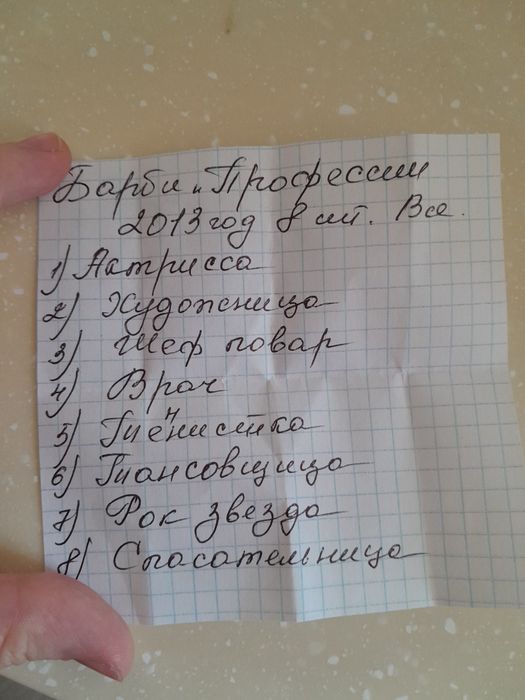 Барби и Профессии
2013 год 8 шт. Все.
1) Актрисса
2) Художница
3) Шеф повар
4) Врач
5) Тиенистка
6) Тансовщица
7) Рок звезда
8) Спасательница